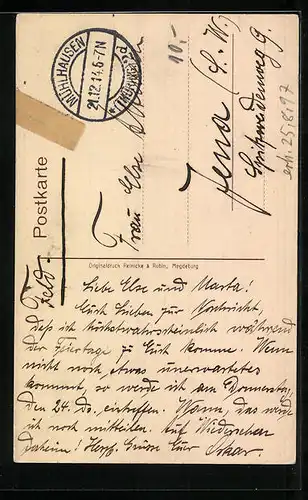 MÜHLHAUSEN
21.12.14.6-7N
(THÜRINGEN)
10,-
Postkarte
Feld-
Frau Else
Jena (S.-W.)
Spitzweidenweg 9.
erh. 25.8.97
Originaldruck Reinicke & Rubin, Magdeburg
Liebe Else und Marta!
Euch Lieben zur Nachricht,
daß ich höchstwahrscheinlich während
der Feiertage zu Euch komme. Wenn
nicht noch etwas unerwartetes
kommt, so werde ich am Donnerstag,
den 24. Ds. eintreffen. Wann, das werde
ich noch mitteilen. Auf Wiedersehen
daheim! Herzl. Grüsse Euer Oskar.